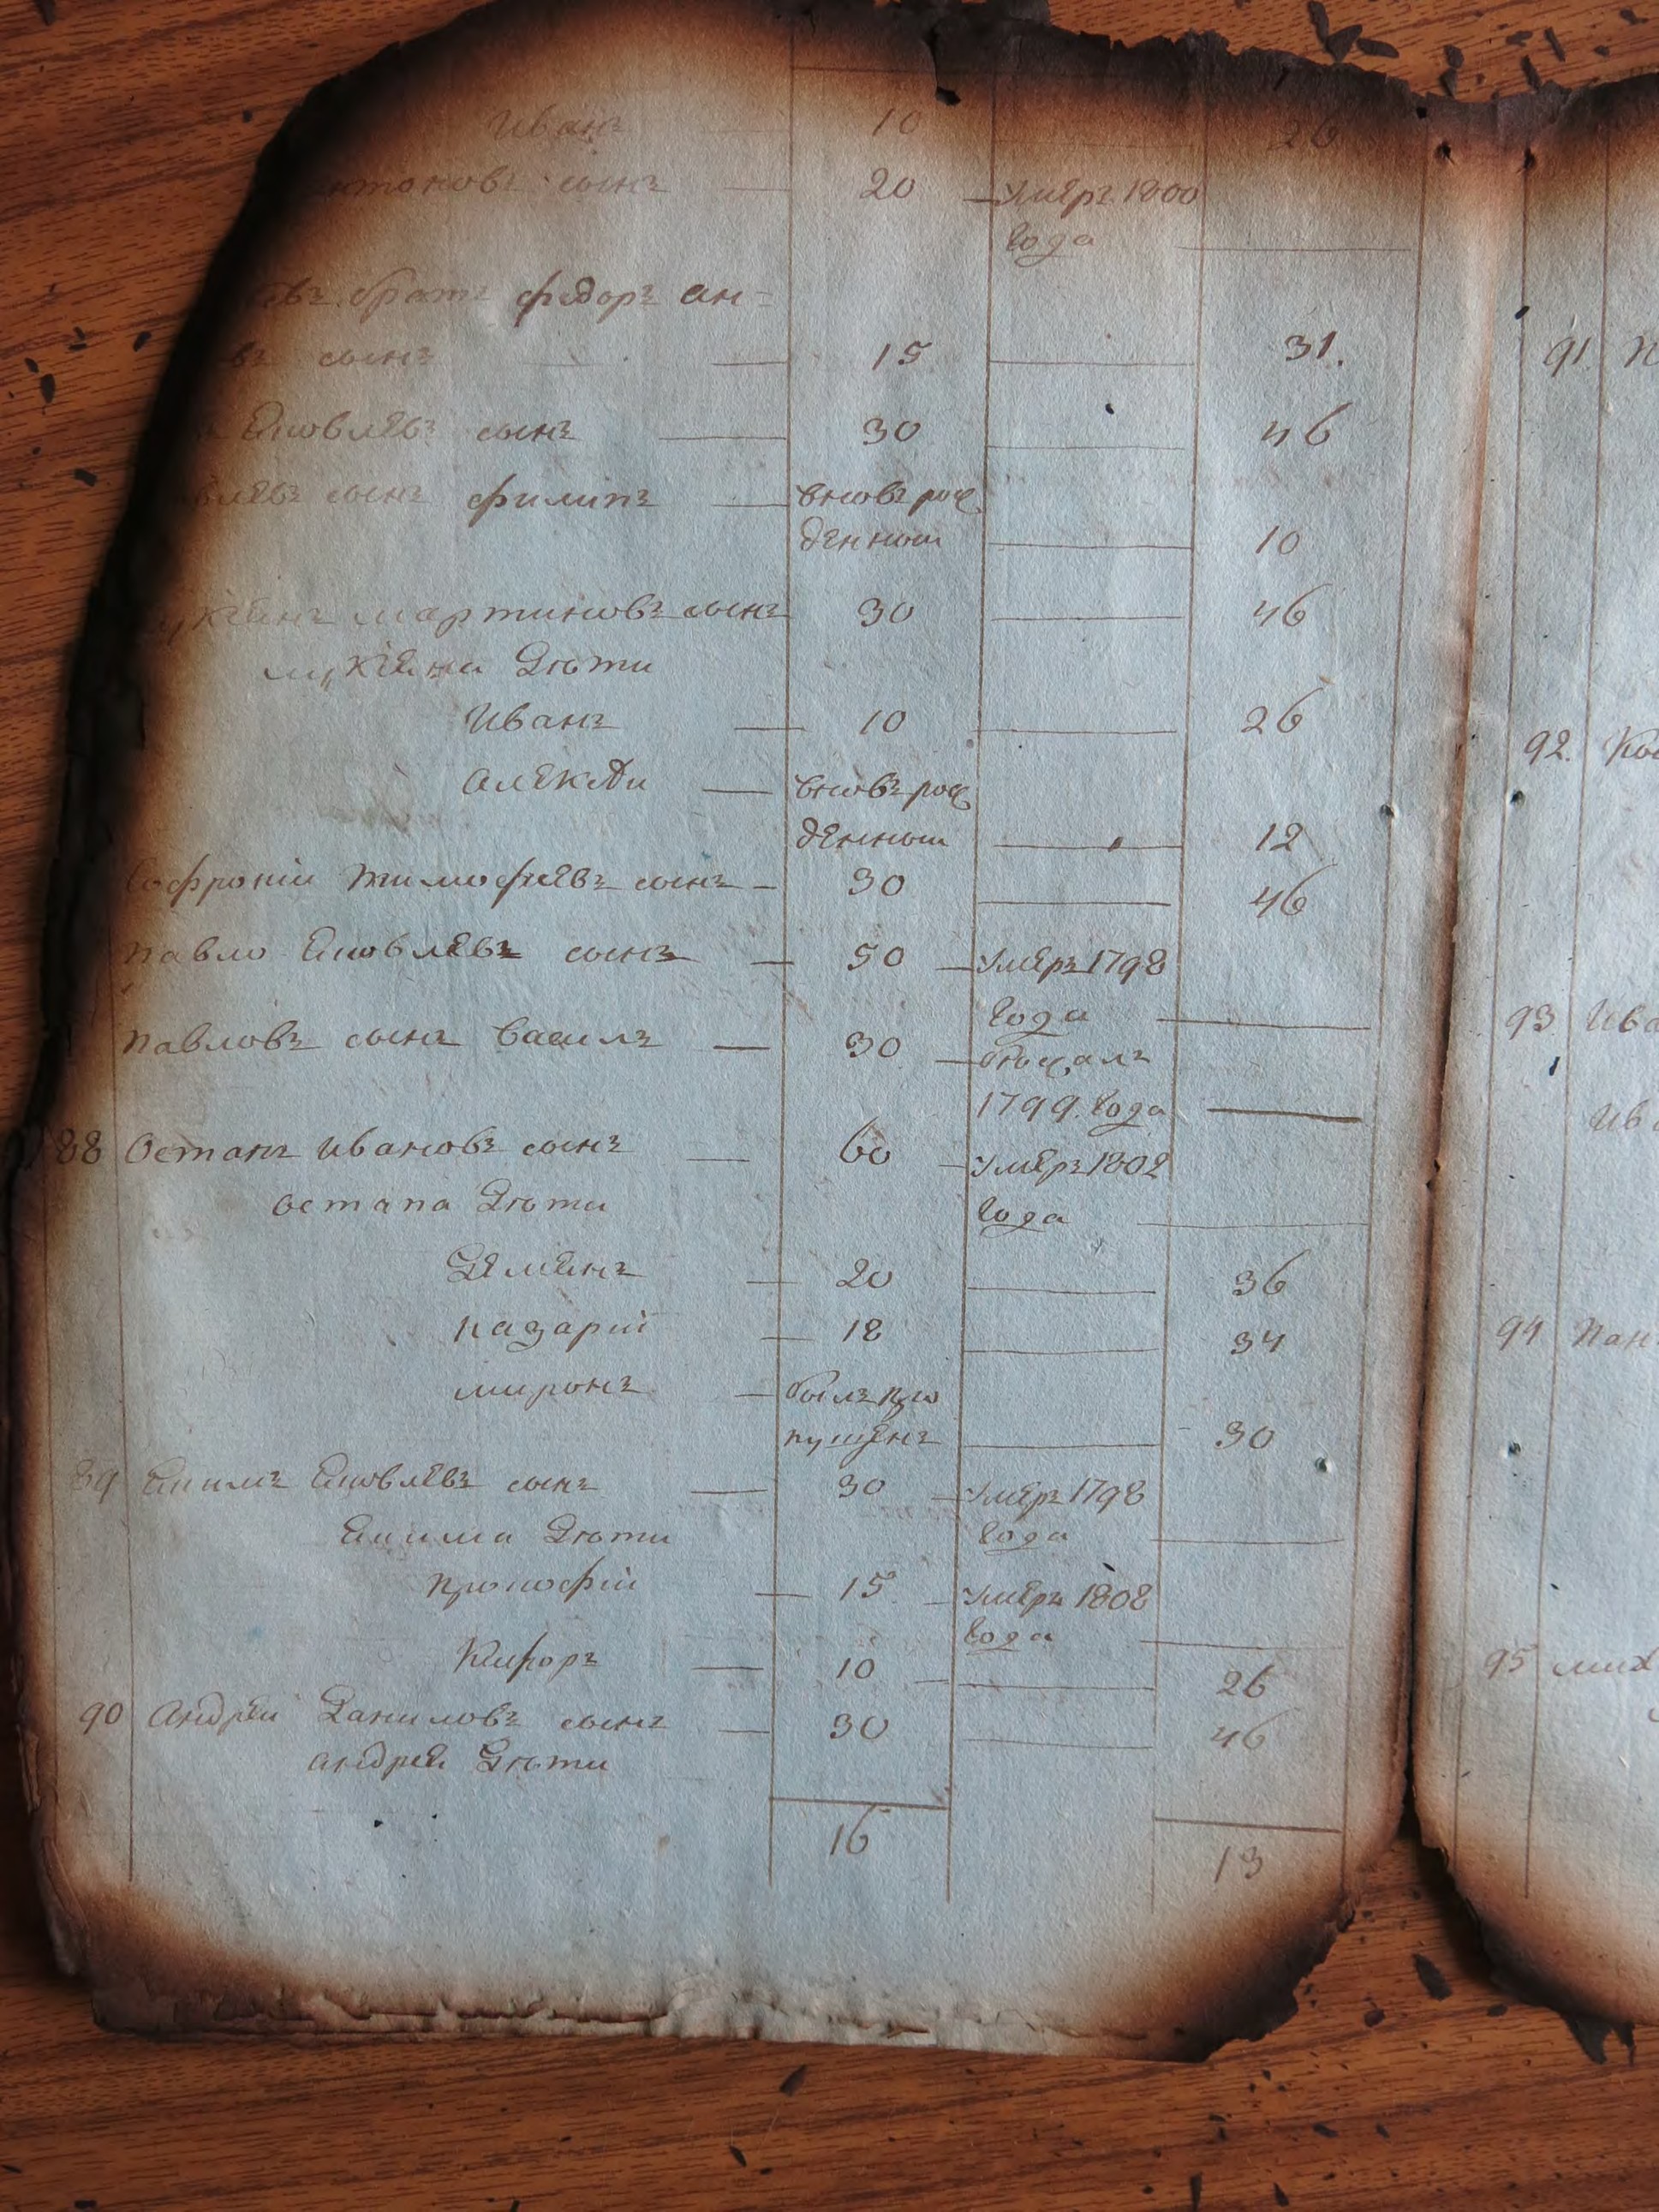 Иванъ 10 26
антоновъ сынъ 20 умеръ 1800
года
братъ федоръ ан=
въ сынъ 15 31.
Яковлевъ сынъ 30 46
влевъ сынъ филипъ вновь рож
денный 10
мартиновъ сынъ 30 46
дети
Иванъ 10 26
алексѣй вновь рож
денный 12
Софроній тимофѣевъ сынъ 30 46
павло Яковлевъ сынъ 50 умеръ 1798
года
павловъ сынъ василъ 30 бежалъ
1799. года
88 Остапъ ивановъ сынъ 60 умеръ 1802
остапа дѣти года
Семенъ 20 36
назарій 18 34
миронъ былъ про
пущенъ 30
89 Якимъ Яковлевъ сынъ 30 умеръ 1798
Якима дѣти года
прокофій 15 умеръ 1808
года
Никифоръ 10 26
90 андрей даниловъ сынъ 30 46
андрея дѣти
16 13
91. П
92. Ко
93 Ива
Ива
94 Пан
95 мих